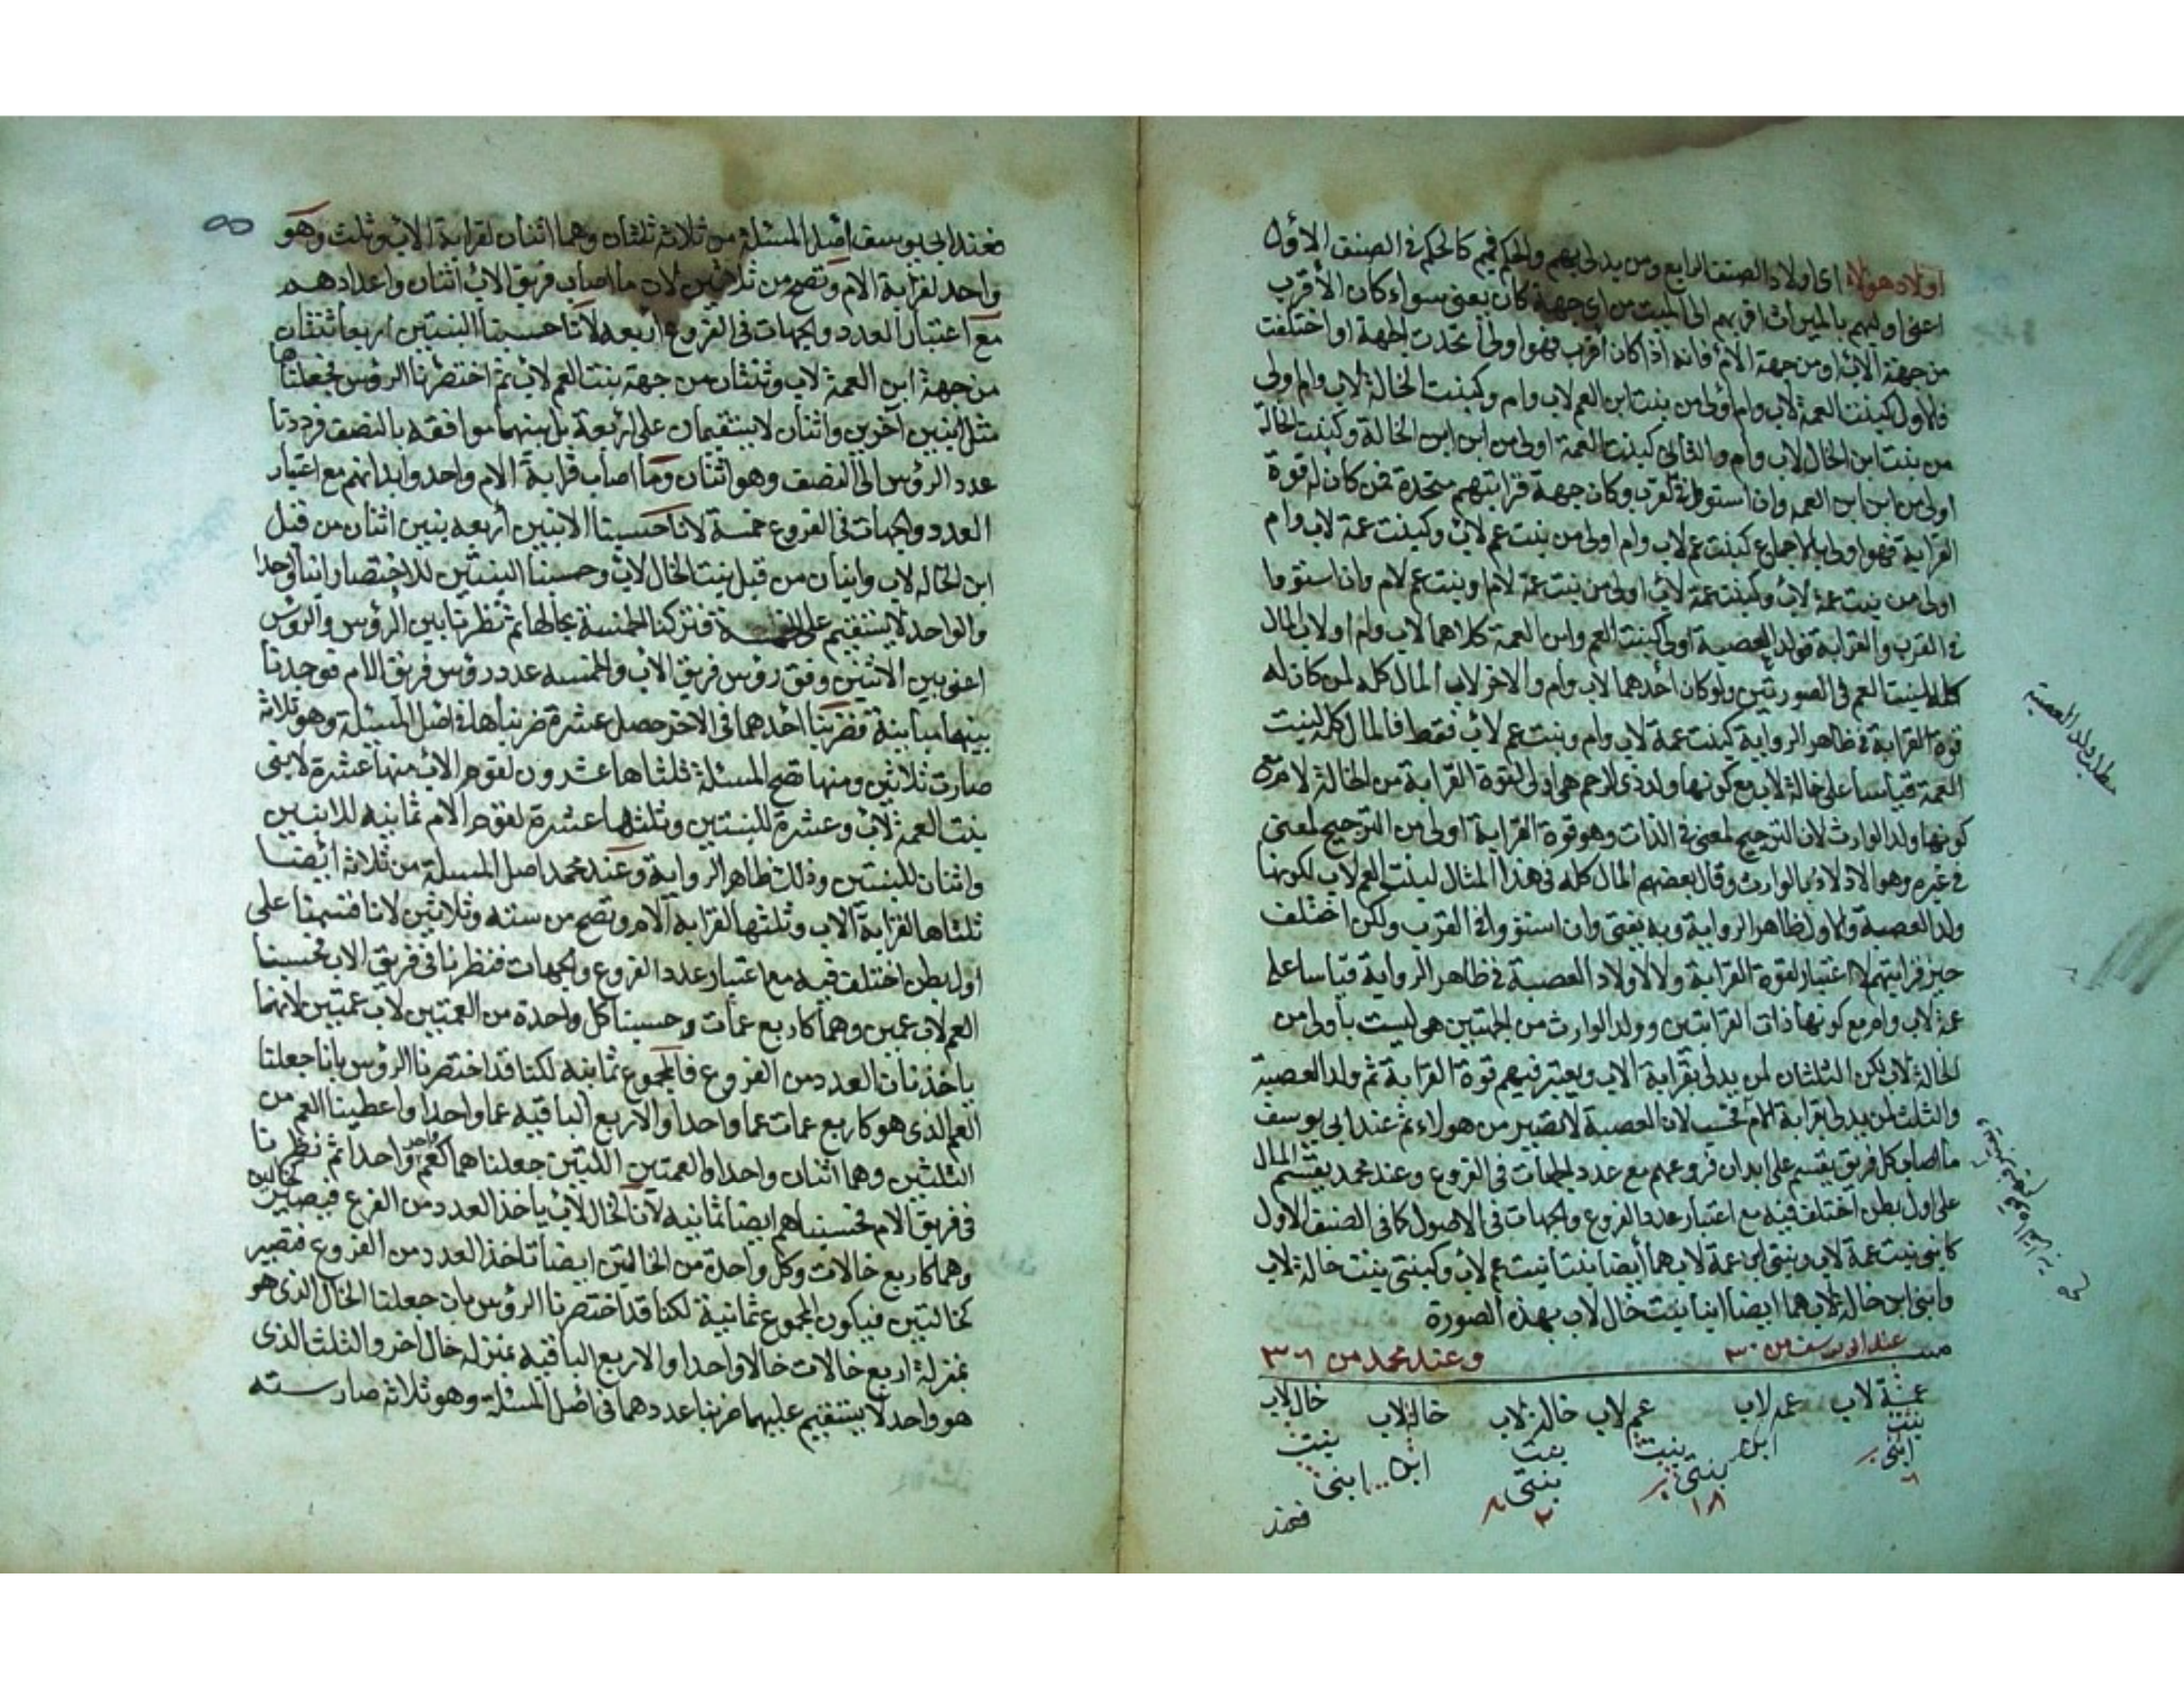 اولاد هؤلاء اى اولاد الصنف الرابع ومن يدلى بهم والحكم فيهم كالحكم فى الصنف الاول
اعنى اوليهم بالميراث اقربهم الى الميت من اى جهة كان يعنى سواء كان الاقرب
من جهة الاب او من جهة الام فانه اذا كان اقرب فهو اولى اتحدت الجهة او اختلفت
فالاول كبنت العمة لاب وام اولى من بنت ابن العم لاب وام وكبنت الخالة لاب وام اولى
من بنت ابن الخال لاب وام والثانى كبنت العمة اولى من ابن ابن الخالة وكبنت الخالة
اولى من ابن ابن العمه وان استووا فى القرب وكان جهة قرابتهم متحدة فمن كان له قوة
القرابة فهو اولى بالاجماع كبنت عم لاب وام اولى من بنت عم لاب وكبنت عمة لاب وام
اولى من بنت عمة لاب وكبنت عمة لاب اولى من بنت عمة لام وبنت عم لام وان استووا
فى القرب والقرابة فولد العصبة اولى كبنت العم وابن العمة كلاهما لاب وام او لاب المال
كله لبنت العم فى الصورتين ولو كان احدهما لاب وام والاخر لاب المال كله لمن كان له
قوة القرابة فى ظاهر الرواية كبنت عمة لاب وام وبنت عم لاب فقط فالمال كله لبنت
العمة قياسا على خالة لاب مع كونها ولد ذى الرحم هى اولى لقوة القرابة من الخالة لام مع
كونها ولد الوارث لان الترجيح لمعنى فى الذات وهو قوة القرابة اولى من الترجيح لمعنى
فى غيره وهو الادلاء بالوارث وقال بعضهم المال كله فى هذا المثال لبنت العم لاب لكونها
ولد العصبة والاول ظاهر الرواية وبه يفتى وان استووا فى القرب ولكن اختلف
حيز قرابتهم لا اعتبار لقوة القرابة ولا لاولاد العصبة فى ظاهر الرواية قياسا على
عمة لاب وام مع كونها ذات القرابتين وولد الوارث من الجهتين هى ليست باولى من
الخالة لاب لكن الثلثان لمن يدلى بقرابة الاب ويعتبر فيهم قوة القرابة ثم ولد العصبة
والثلث لمن يدلى بقرابة الام فحسب لان العصبة لا تصير من هولاء ثم عند ابى يوسف
ما اصاب كل فريق يقسم على ابدان فروعهم مع عدد الجهات فى الفروع وعند محمد يقتسم المال
على اول بطن اختلف فيه مع اعتبار عدد الفروع والجهات فى الاصول كما فى الصنف الاول
كابنى بنت عمة لاب وبنتى ابن عمة لاب هما ايضا بنتا بنت عم لاب وكبنتى بنت خالة لاب
وابنى ابن خالة لاب هما ايضا ابنا بنت خال لاب بهذه الصورة
عند ابى يوسف من ٣٠ وعند محمد من ٣٦
عمة لاب عمه لاب عم لاب خالة لاب خالة لاب خال لاب
بنت ابن بنت بنت ابن بنت
ابنى بنتى بنتى ابنى
٦ ١٨ ٢
فعند
مطلب ولد العصبة
فعند ابى يوسف اصل المسئلة من ثلاثة ثلثان وهما اثنان لقرابة الاب وثلث وهو
واحد لقرابة الام وتصح من ثلاثين لان ما اصاب فريق الاب اثنان واعدادهم
مع اعتبار العدد والجهات فى الفروع اربعة لانا حسبنا البنتين اربعا ثنتان
من جهة ابن العمة لاب وثنتان من جهة بنت العم لاب ثم اختصرنا الرؤس فجعلناها
مثل ابنين آخرين واثنان لا يستقيمان على اربعة بل بينهما موافقة بالنصف فرددنا
عدد الرؤس الى النصف وهو اثنان وما اصاب قرابة الام واحد وابدانهم مع اعتبار
العدد والجهات فى الفروع خمسة لانا حسبنا الابنين اربعه بنين اثنان من قبل
ابن الخاله لاب وابنان من قبل بنت الخال لاب وحسبنا البنتين للاختصار ابنا واحدا
والواحد لا يستقيم على الخمسة فتركنا الخمسة بحالها ثم نظرنا بين الرؤس والرؤس
اعنى بين الاثنين وفق رؤس فريق الاب والخمسه عدد رؤس فريق الام فوجدنا
بينهما مباينة فضربنا احدهما فى الاخر حصل عشرة ضربناها فى اصل المسئلة وهو ثلاثة
صارت ثلاثين ومنها تصح المسئلة ثلثاها عشرون لقوم الاب منها عشرة لابنى
بنت العمة لاب وعشرة للبنتين وثلثها عشرة لقوم الام ثمانيه للابنين
واثنان للبنتين وذلك ظاهر الرواية وعند محمد اصل المسئلة من ثلاثة ايضا
ثلثاها لقرابة الاب وثلثها لقرابة الام وتصح من سته وثلاثين لانا قسمنا على
اول بطن اختلف فيه مع اعتبار عدد الفروع والجهات فنظرنا فى فريق الاب فحسبنا
العم لاب عمين وهما كاربع عمات وحسبنا كل واحدة من العمتين لاب عمتين لانهما
ياخذنان العدد من الفروع فالمجموع ثمانيه لكنا قد اختصرنا الرؤس بانا جعلنا
العم الذى هو كاربع عمات عما واحدا والاربع الباقيه عما واحدا واعطينا العم من
الثلثين وهما اثنان واحدا والعمتين اللتين جعلناهما كعم واحد واحدا ثم نظرنا
فى فريق الام فحسبناهم ايضا ثمانيه لان الخال لاب ياخذ العدد من الفرع فيصير كخالين
وهما كاربع خالات وكل واحدة من الخالتين ايضا تاخذ العدد من الفروع فتصير
كخالتين فيكون المجموع ثمانية لكنا قد اختصرنا الرؤس بان جعلنا الخال الذى هو
بمنزلة اربع خالات خالا واحدا والاربع الباقيه بمنزلة خال اخر والثلث الذى
هو واحد لا يستقيم عليهما ضربنا عددهما فى اصل المسئلة وهو ثلاثه صار سته